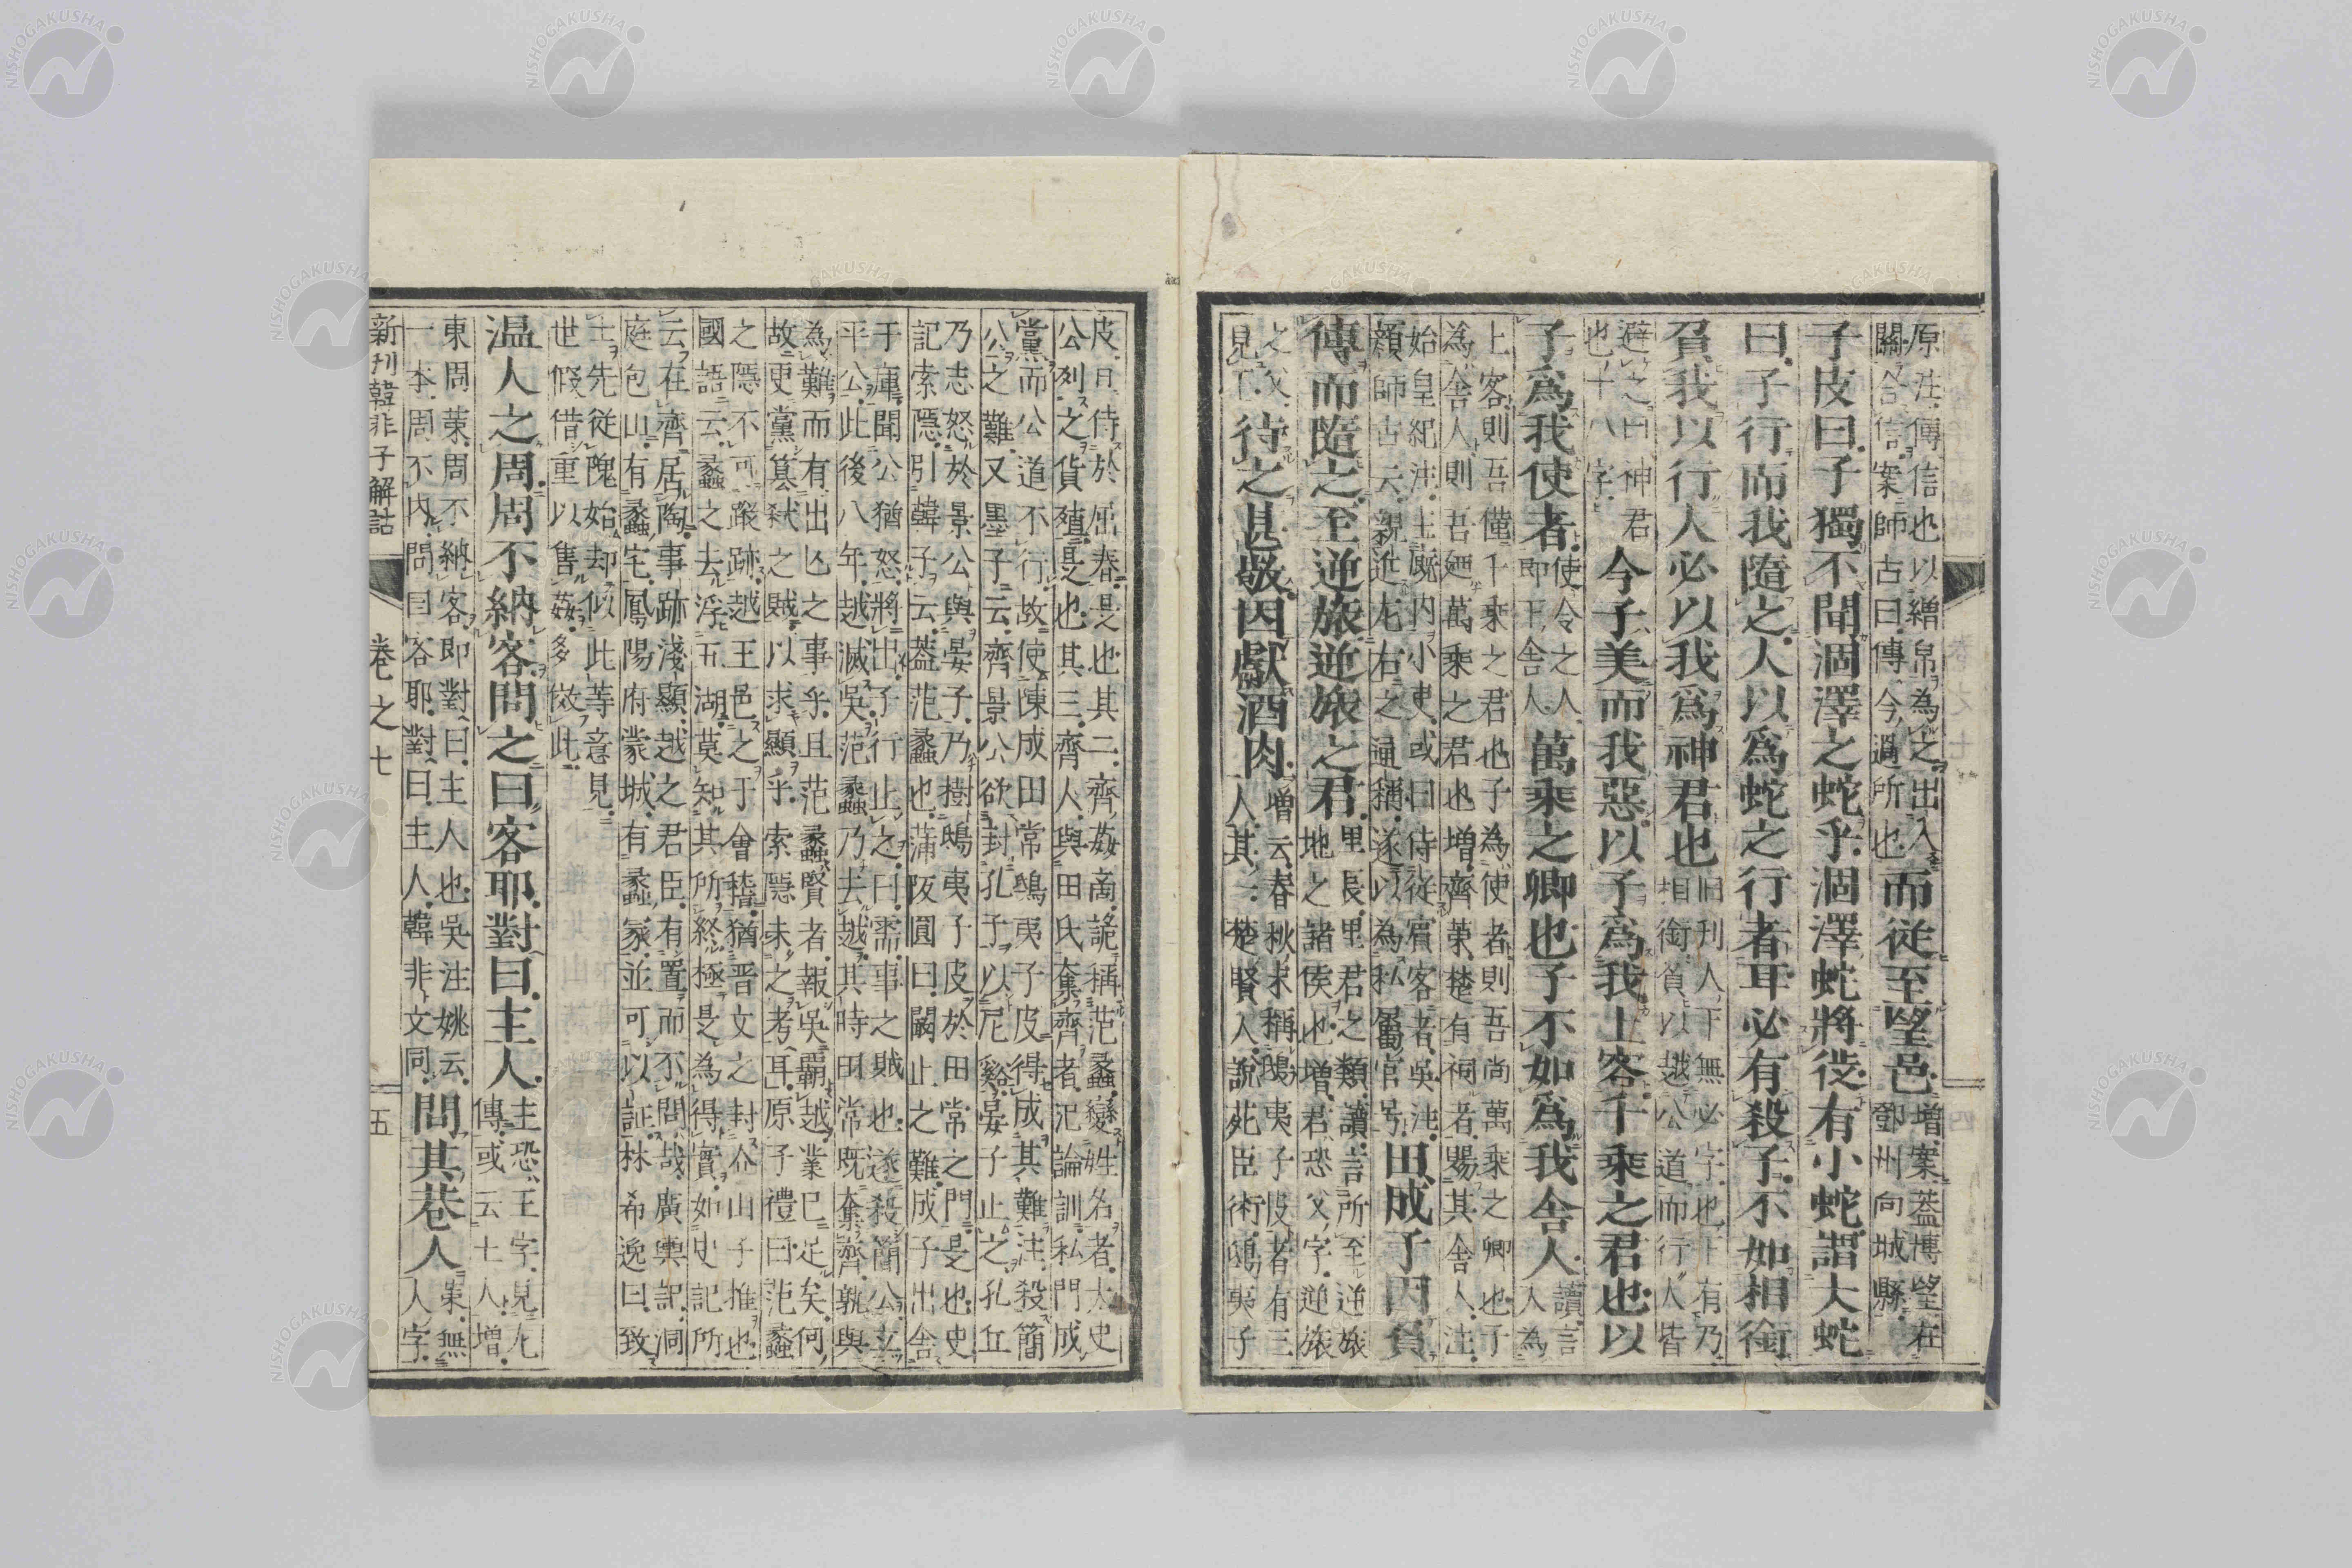 原注傳信也以繒帛為之出入
關合信案師古曰傳今過所也而從至望邑增案蓋博望在
鄧州向城縣
子皮曰子獨不聞涸澤之蛇乎涸澤蛇將徙有小蛇謂大蛇
曰子行而我隨之人以為蛇之行者耳必有殺子不如相銜
負我以行人必以我為神君也旧刊人下無必字也下有乃
相銜負以越公道而行人皆
避之曰神君
也十八字今子美而我惡以子為我上客千乘之君也以
子為我使者使令之人
即王舍人萬乘之卿也子不如為我舍人讀言
人為
上客則吾僅千乘之君也子為使者則吾尚萬乘之卿也子
為舍人則吾廼萬乘之君也增齊策楚有祠者賜其舍人注
始皇紀注主廄內小吏或曰侍從賓客者吳注
顏師古云親近左右之通稱遂以為私屬官号田成子因負
傳而隨之至逆旅逆旅之君里長里君之類讀言所至逆旅
地之諸侯也增君恐父字逆旅
之父
見下待之甚敬因獻酒肉增云春秋末稱鴟夷子皮者有三
人其一楚賢人說苑臣術鴟夷子
皮日侍於屈春是也其二齊姦商詭稱范蠡變姓名者太史
公列之貨殖是也其三齊人與田氏奪齊者汜論訓私門成
黨而公道不行故使陳成田常鴟夷子皮得成其難注殺簡
公之難又墨子云齊景公欲封孔子以尼谿晏子止之孔丘
乃志怒於景公與晏子乃樹鴟夷子皮於田常之門是也史
記索隱引韓子云蓋范蠡也蒲阪圓曰闞止之難成子出舍
于庫聞公猶怒將出子行止之曰需事之賊也遂殺簡公立
平公此後八年越滅吳范蠡乃去越其時田常既奪齊孰與
為難而有出亾之事乎且范蠡賢者報吳霸越業已足矣何
故更黨篡弒之賊以求顯乎索隱未之考耳原子禮曰范蠡
之隱不可蹤跡越王邑之于會稽猶晋文之封介山子推也
國語云蠡之去浮五湖莫知其所終極是為得實如史記所
云在齊居陶事跡淺顯越之君臣有置而不問哉廣輿記洞
庭包山有蠡宅鳳陽府蒙城有蠡冢並可以証林希逸曰致
士先從隗始却似此等意見
世假借重以售姦多倣此
温人之周周不納客問之曰客耶對曰主人主恐王字見九
傳或云士人增
東周策周不納客即對曰主人也吳注姚云
一本周不内問曰客耶對曰主人韓非文同問其巷人策無
人字
新刊韓非子解詁 卷之七 五